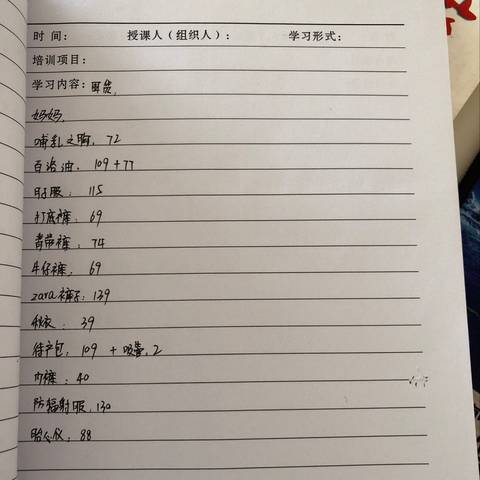 时 间： 授课人（组织人）： 学习形式：
培训项目：
学习内容：囤货，
妈妈，
哺乳文胸，72
百洛油，109+77
月子服：115
打底裤：69
背带裤：74
牛仔裤，69
zara裤子：139
秋衣：39
待产包：109 + 吸管，2
内裤：40
防辐射服，130
胎心仪，88